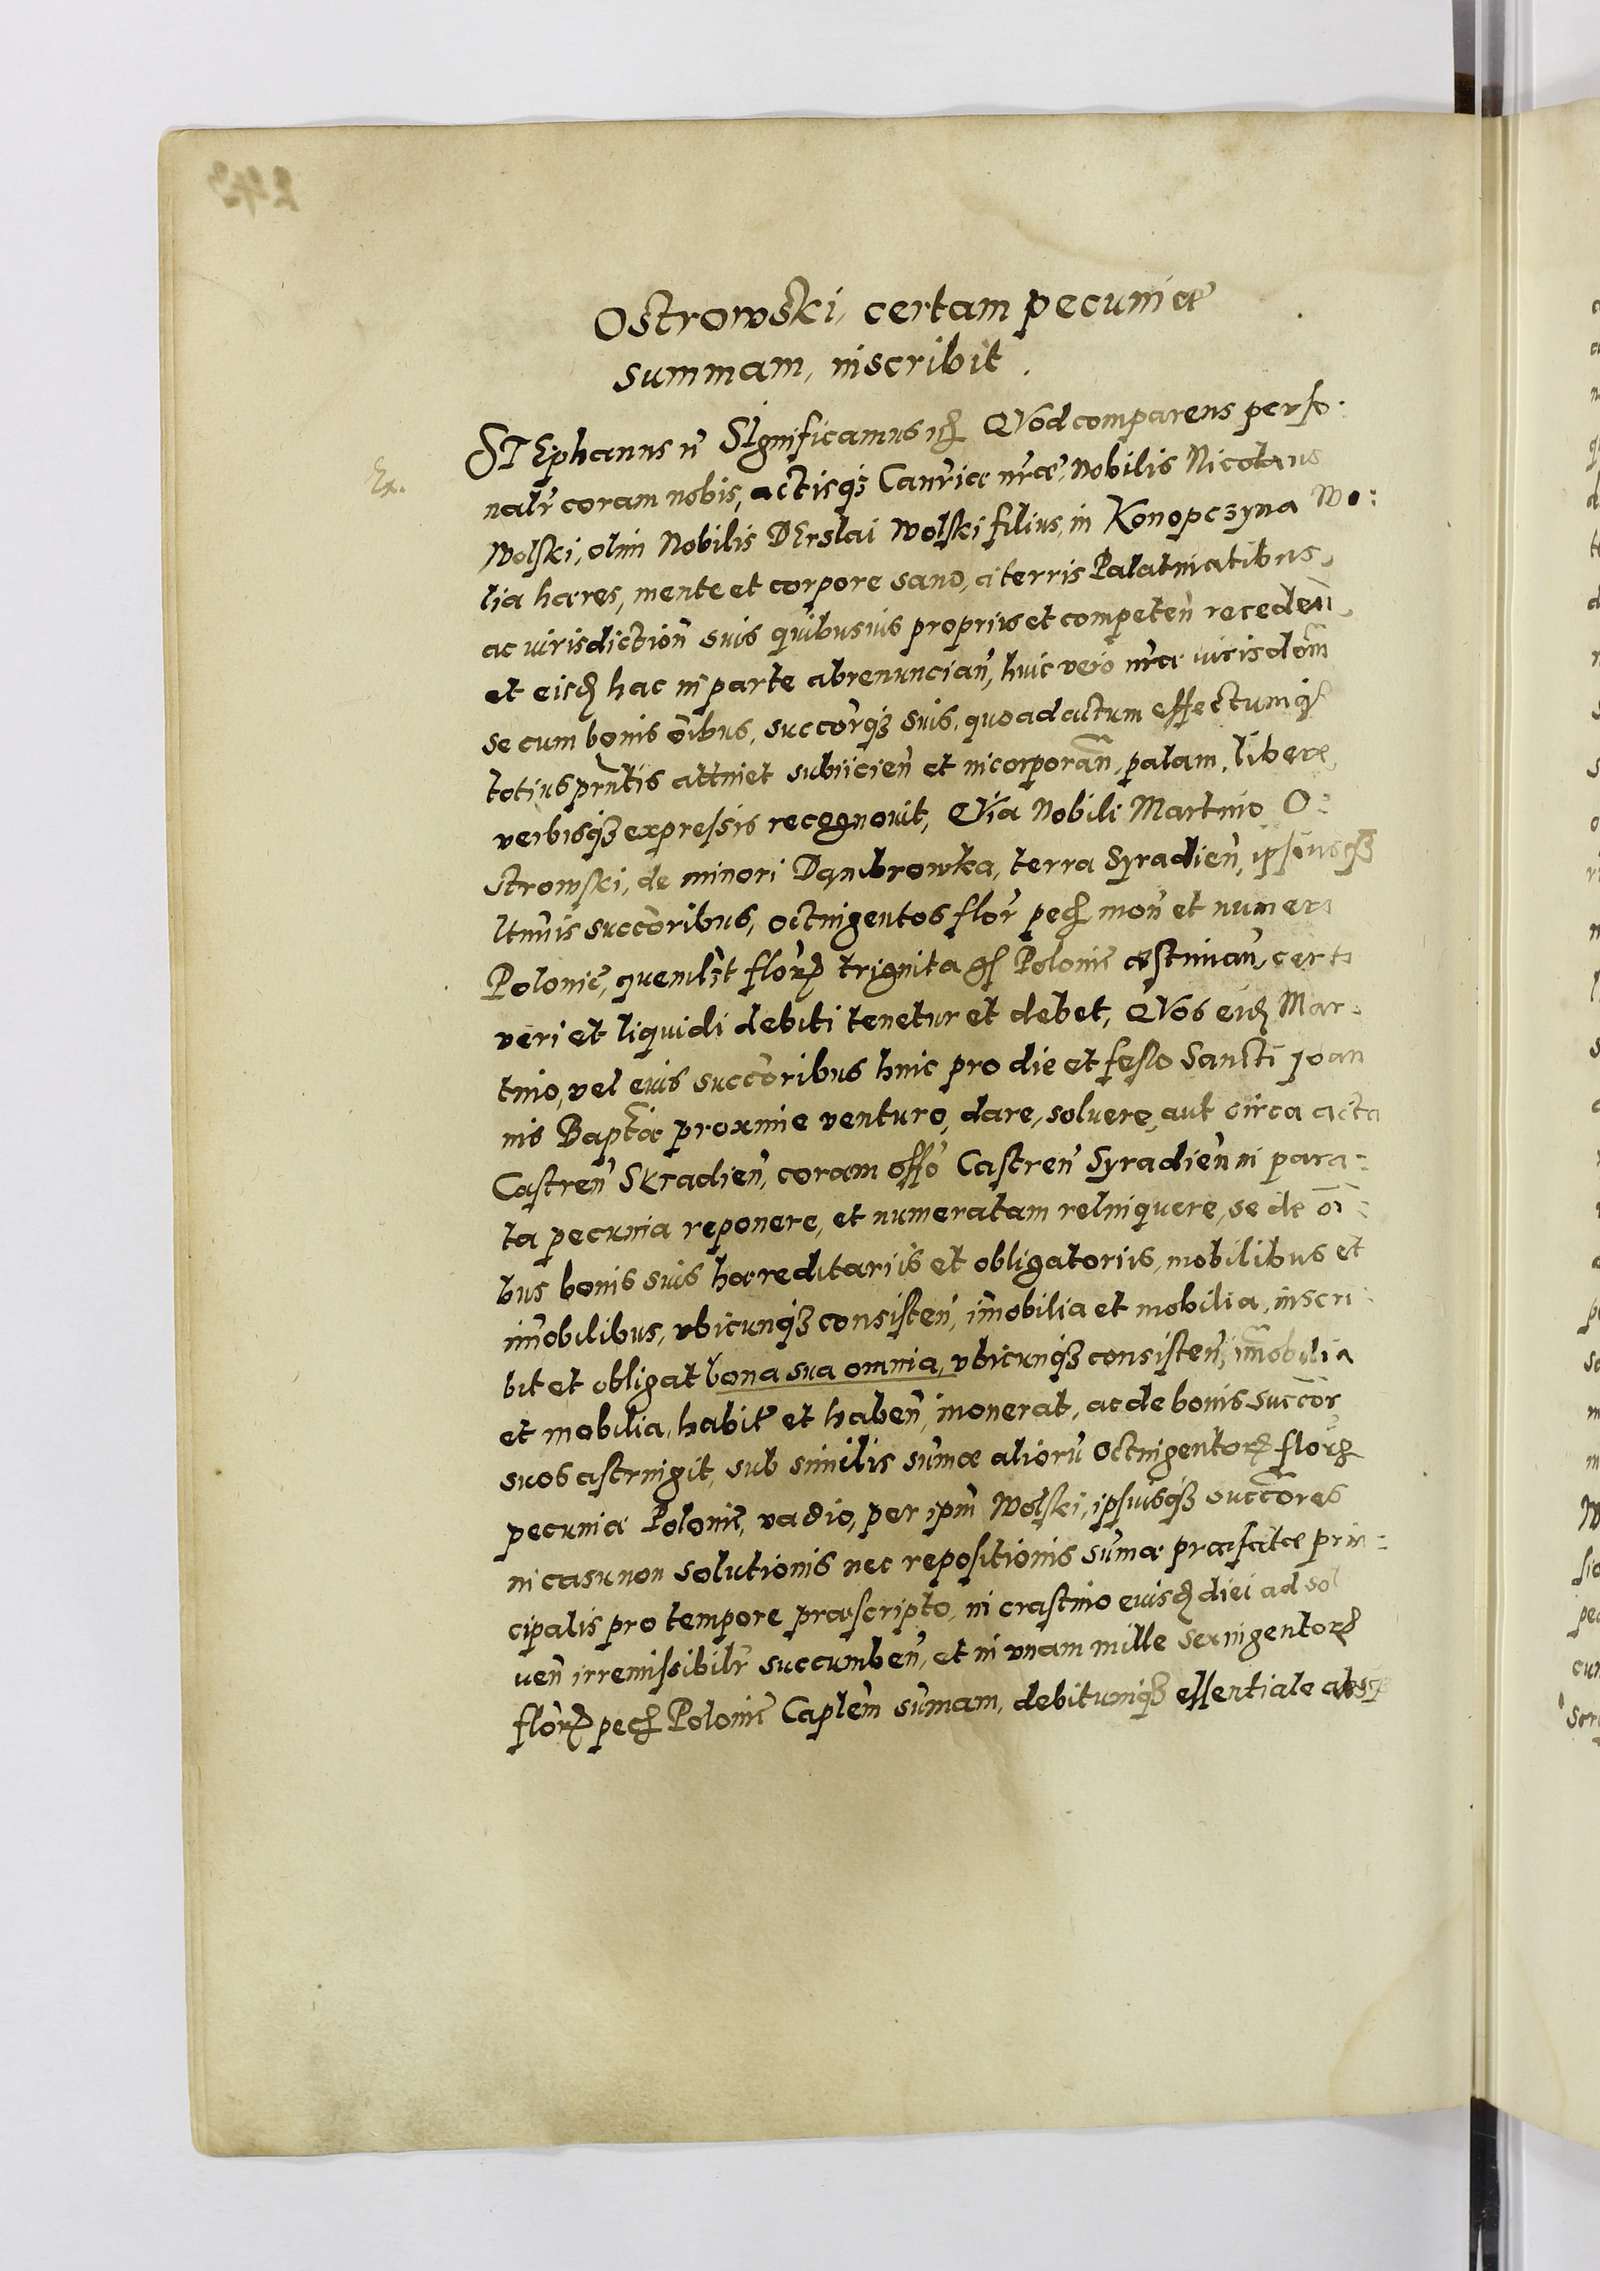 Ostrowski, certam pecuniæ
summam, inscribit.
Ex.
STEphanus ec̄ SIgnificamus ec̄ QVod comparens perso:
nalr̃ coram nobis, actisq₃ Canr̃iæ nr̃æ, Nobilis Nicolaus
Wolski, olim Nobilis DErslai Wolski filius, in Konopczyna Wo:
lia hæres, mente et corpore sano, a terris Palatinatibus,
ac iurisdiction̄ suis quibusuis proprijs et competen̄ receden̄,
et eisd̨ hac in parte abrenuncian̄, huic vero nr̃æ iurisdc̄ni
se cum bonis oĩbus, succor̄q₃ suis, quo ad actum effectumq₃
totius pr̃ntis attinet subijcien̄ et incorporan̄, palam, libere,
verbisq₃ expressis recognouit, QVia Nobili Martino O:
strowski, de minori Dąmbrowka, terra Syradien̄, ipsiusq₃
ltimis succõribus, octingentos flor̄ pec̨ mon̄ et numeri
Polonic̄, quemlʒt flor̄ꝝ triginta gſ Polonic̄ æstiman̄, certi
veri et liquidi debiti tenetur et debet, QVos eid̨ Mar:
tino, vel eius succõribus hinc pro die et festo Sancti Joan
nis Baptæ̃ proxime venturo, dare, soluere, aut circa acta
Castren̄ Siradien̄, coram offō Castren̄ Syradien̄ in para:
ta pecunia reponere, et numeratam relinquere, se de oĩ:
bus bonis suis hæreditarijs et obligatorijs, mobilibus et
im̄obilibus, vbicunq₃ consisten̄, im̄obilia et mobilia, inscri:
bit et obligat bona sua omnia, vbicunq₃ consisten̄, im̄obilia
et mobilia, habit̄ et haben̄, inonerat, ac de bonis succor̄
suos astringit, sub similis sum̄æ alioru̅ octingentoꝝ flor̄ꝝ
pecuniæ Polonic̄, vadio, per ipm̄ Wolski, ipsiusq₃ succõres
in casu non solutionis nec repositionis sum̄æ præfatæ prin:
cipalis pro tempore præscripto, in crastino eiusd̨ diei ad sol
uen̄ irremissibilr̃ succumben̄, et in vnam mille sexingentoꝝ
flor̄ꝝ pec̨ Polonic̄ Caplem̄ sum̄am, debitumq₃ essentiale